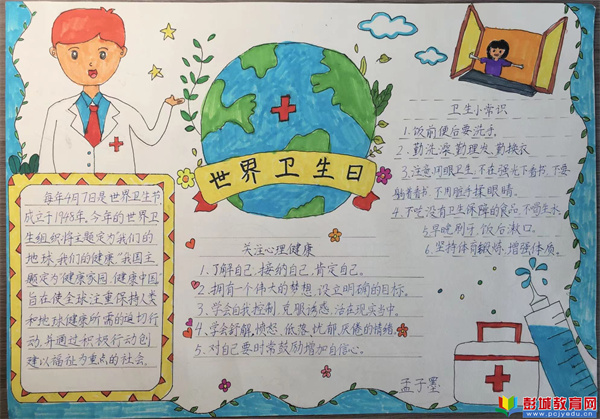 世界卫生日
每年4月7日是世界卫生节,
成立于1948年,今年的世界卫
生组织将主题定为"我们的
地球,我们的健康"我国主
题定为"健康家园,健康中国"
旨在使全球注重保持人类
和地球健康所需的迫切行
动,并通过积极行动创
建以福祉为重点的社会。
关注心理健康
1.了解自己,接纳自己,肯定自己。
2.拥有一个伟大的梦想,设立明确的目标。
3.学会自我控制,克服诱惑,活在现实当中。
4.学会纾解,愤怒、低落、忧郁、厌倦的情绪。
5.对自己要时常鼓励增加自信心。
卫生小常识
1.饭前便后要洗手
2.勤洗澡,勤理发,勤换衣
3.注意用眼卫生,不在强光下看书,不要
躺着看书,不用脏手揉眼睛。
4.不吃没有卫生保障的食品,不喝生水
5.早晚刷牙,饭后漱口。
6.坚持体育锻炼,增强体质。
孟子墨
彭城教育网
www.pcjyedu.cn